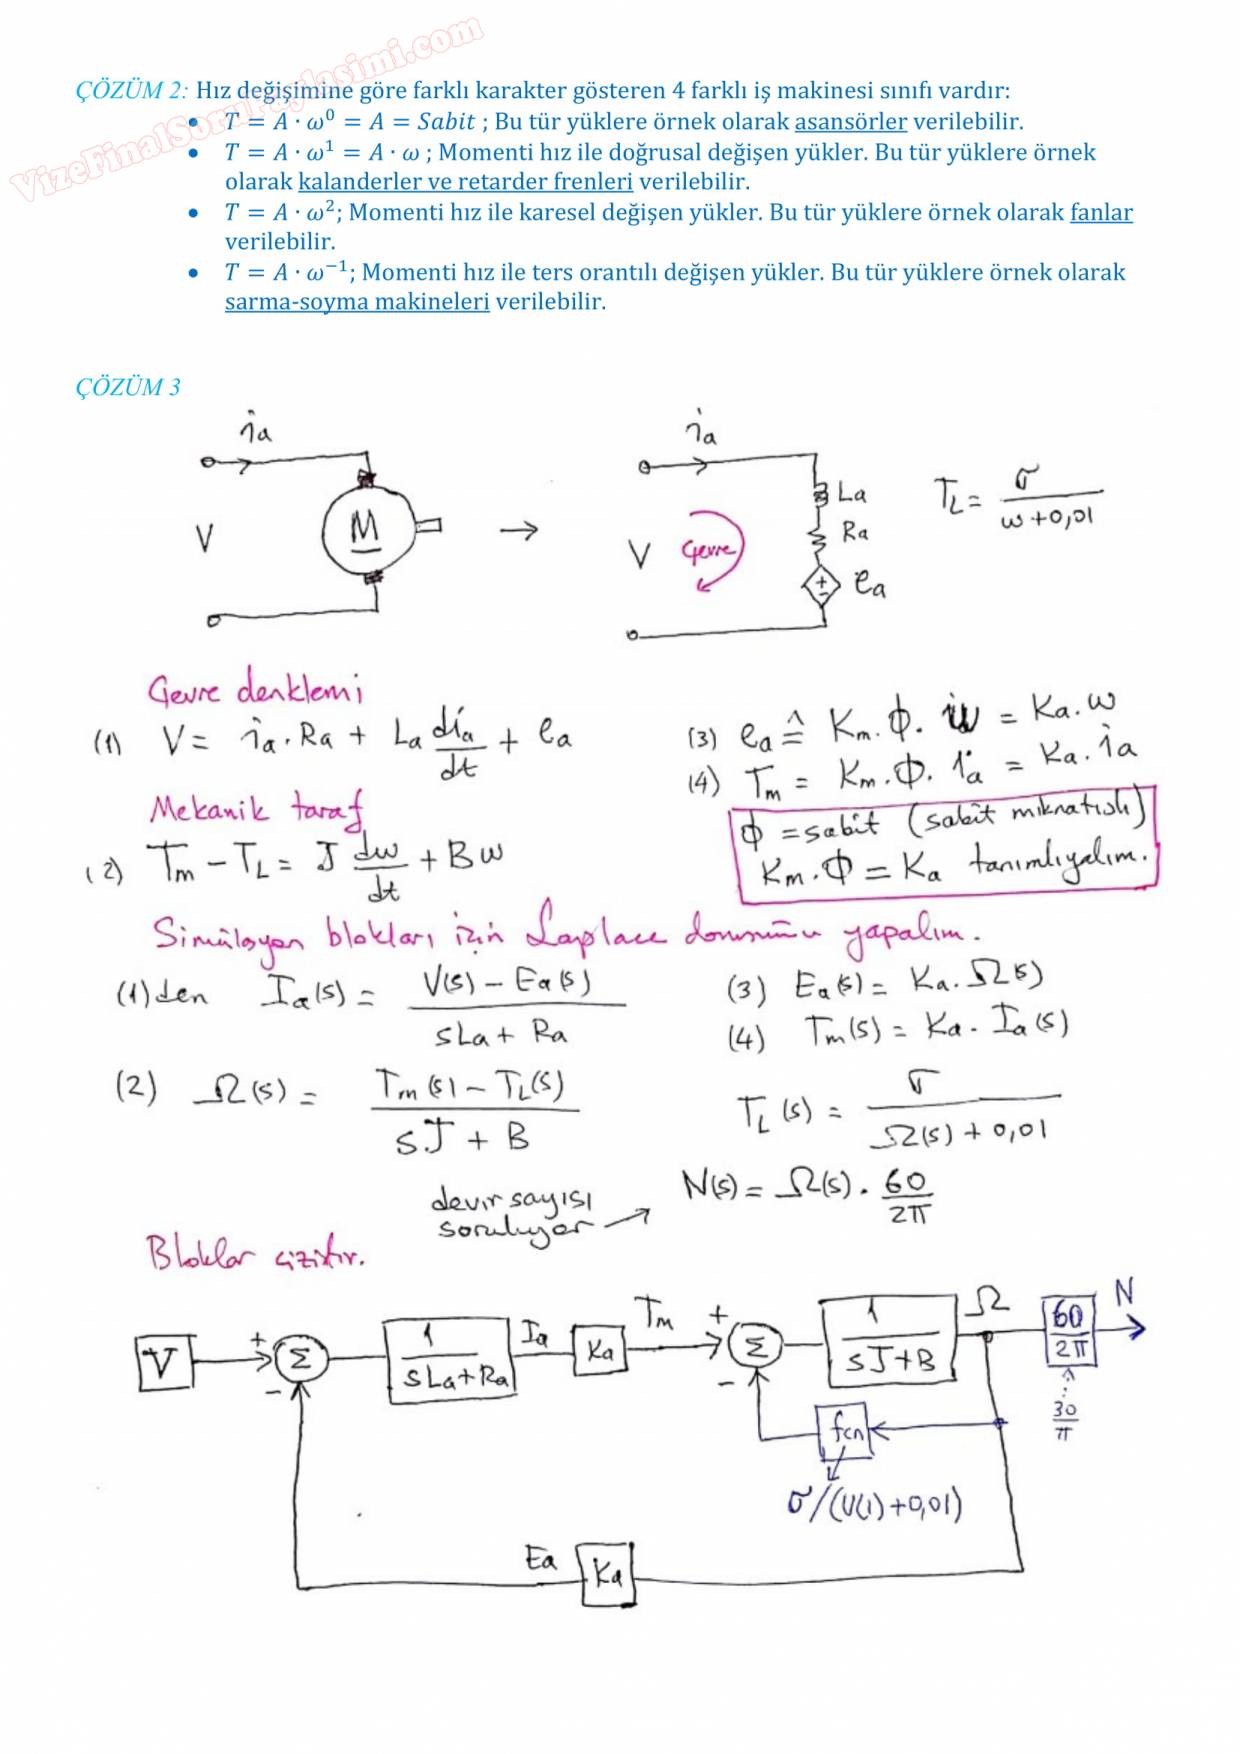 VizeFinalSoruPaylasimi.com
ÇÖZÜM 2: Hız değişimine göre farklı karakter gösteren 4 farklı iş makinesi sınıfı vardır:
• T = A · ω⁰ = A = Sabit ; Bu tür yüklere örnek olarak asansörler verilebilir.
• T = A · ω¹ = A · ω ; Momenti hız ile doğrusal değişen yükler. Bu tür yüklere örnek
olarak kalanderler ve retarder frenleri verilebilir.
• T = A · ω²; Momenti hız ile karesel değişen yükler. Bu tür yüklere örnek olarak fanlar
verilebilir.
• T = A · ω⁻¹; Momenti hız ile ters orantılı değişen yükler. Bu tür yüklere örnek olarak
sarma-soyma makineleri verilebilir.
ÇÖZÜM 3
ia
V
M
→
ia
V
Çevre
La
Ra
+ -
ea
TL = σ / (ω + 0,01)
Çevre denklemi
(1) V = ia . Ra + La dia/dt + ea
(3) ea ≙ Km . Φ . ω = Ka . ω
(4) Tm = Km . Φ . ia = Ka . ia
Mekanik taraf
(2) Tm - TL = J dω/dt + Bω
Φ = sabit (sabit mıknatıslı)
Km . Φ = Ka tanımlıyalım.
Simülasyon blokları için Laplace dönüşümü yapalım.
(1) den Ia(s) = (V(s) - Ea(s)) / (sLa + Ra)
(3) Ea(s) = Ka . Ω(s)
(4) Tm(s) = Ka . Ia(s)
(2) Ω(s) = (Tm(s) - TL(s)) / (sJ + B)
TL(s) = σ / (Ω(s) + 0,01)
devir sayısı
soruluyor →
N(s) = Ω(s) . 60/2π
Bloklar çizilir.
V
+
-
Σ
1 / (sLa + Ra)
Ia
Ka
Tm
+
-
Σ
1 / (sJ + B)
Ω
60/2π
N
30/π
fcn
σ/(U(1)+0,01)
Ea
Ka